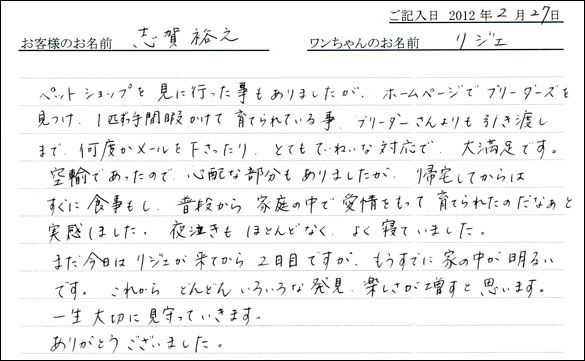 ご記入日 2012年2月27日
お客様のお名前 志賀裕之 ワンちゃんのお名前 リジェ
ペットショップを見に行った事もありましたが、ホームページでブリーダーズを
見つけ、1匹ずつ手間暇かけて育てられている事、ブリーダーさんよりも引き渡し
まで、何度かメールを下さったり、とてもていねいな対応で、大満足です。
空輸であったので、心配な部分もありましたが、帰宅してからは
すぐに食事もし、普段から家庭の中で愛情をもって育てられたのだなぁと
実感しました。夜泣きもほとんどなく、よく寝ていました。
まだ今日はリジェが来てから2日目ですが、もうすでに家の中が明るい
です。これからどんどんいろいろな発見、楽しさが増すと思います。
一生大切に見守っていきます。
ありがとうございました。